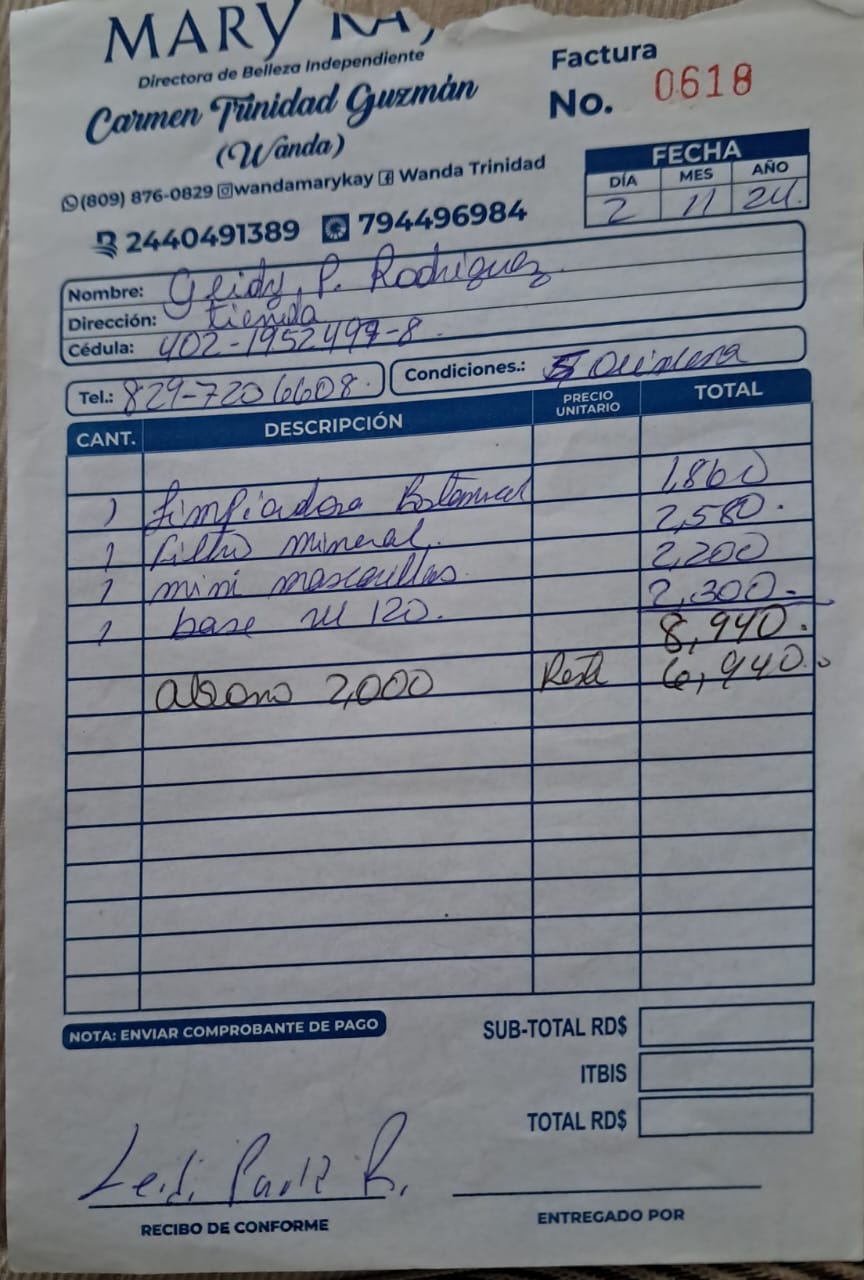 MARY KAY
Directora de Belleza Independiente
Carmen Trinidad Guzmán
(Wanda)
(809) 876-0829 wandamarykay Wanda Trinidad
2440491389 794496984
Factura
No. 0618
FECHA
DÍA MES AÑO
2 11 24.
Nombre: Geidy P. Rodriguez
Dirección: tienda
Cédula: 402-1952499-8
Tel.: 829-720 6608. Condiciones.: 5 Quincena
CANT. DESCRIPCIÓN PRECIO UNITARIO TOTAL
1 Limpiadora Botanical 1,860
1 filtro mineral. 2,580.
1 mini mascarillas. 2,200
1 base 120. 2,300.
8,940.
abono 2,000 Resta 6,940.
NOTA: ENVIAR COMPROBANTE DE PAGO
SUB-TOTAL RD$
ITBIS
TOTAL RD$
Leidi Paola R.
RECIBO DE CONFORME
ENTREGADO POR